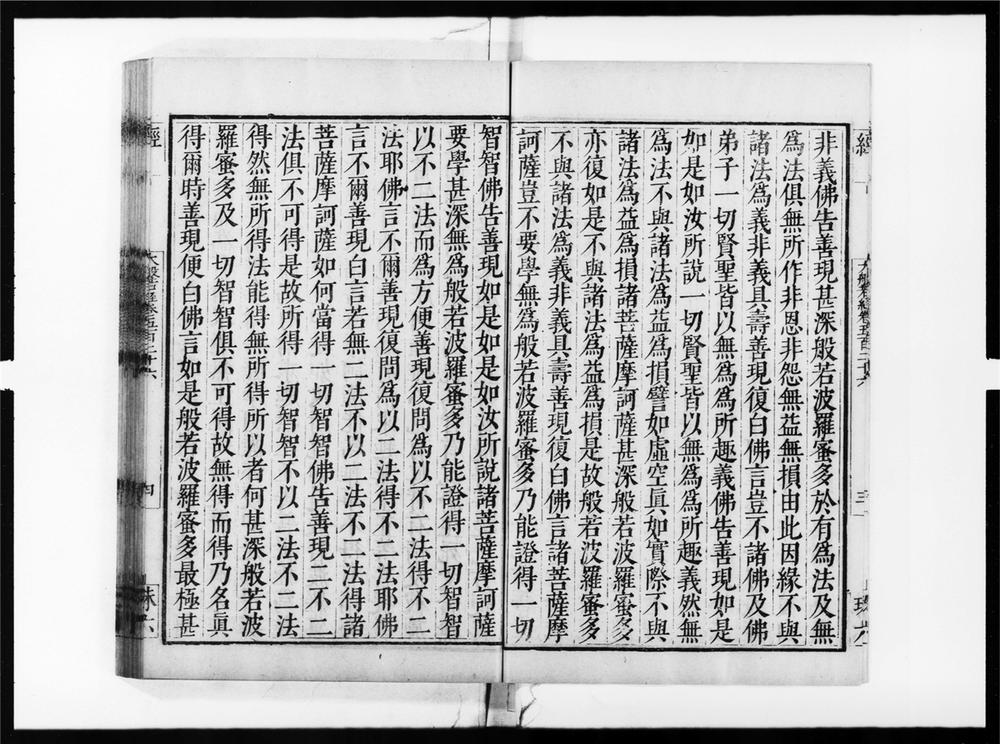 非義佛告善現甚深般若波羅蜜多於有爲法及無
爲法俱無所作非恩非怨無益無損由此因緣不與
諸法爲義非義具壽善現復白佛言豈不諸佛及佛
弟子一切賢聖皆以無爲爲所趣義佛告善現如是
如是如汝所說一切賢聖皆以無爲爲所趣義然無
爲法不與諸法爲益爲損譬如虛空眞如實際不與
諸法爲益爲損諸菩薩摩訶薩甚深般若波羅蜜多
亦復如是不與諸法爲益爲損是故般若波羅蜜多
不與諸法爲義非義具壽善現復白佛言諸菩薩摩
訶薩豈不要學無爲般若波羅蜜多乃能證得一切
智智佛告善現如是如是如汝所說諸菩薩摩訶薩
要學甚深無爲般若波羅蜜多乃能證得一切智智
以不二法而爲方便善現復問爲以不二法得不二
法耶佛言不爾善現復問爲以二法得不二法耶佛
言不爾善現白言若無二法不以二法不二法得諸
菩薩摩訶薩如何當得一切智智佛告善現二不二
法俱不可得是故所得一切智智不以二法不二法
得然無所得法能得無所得所以者何甚深般若波
羅蜜多及一切智智俱不可得故無得而得乃名眞
得爾時善現便白佛言如是般若波羅蜜多最極甚
經
四
三